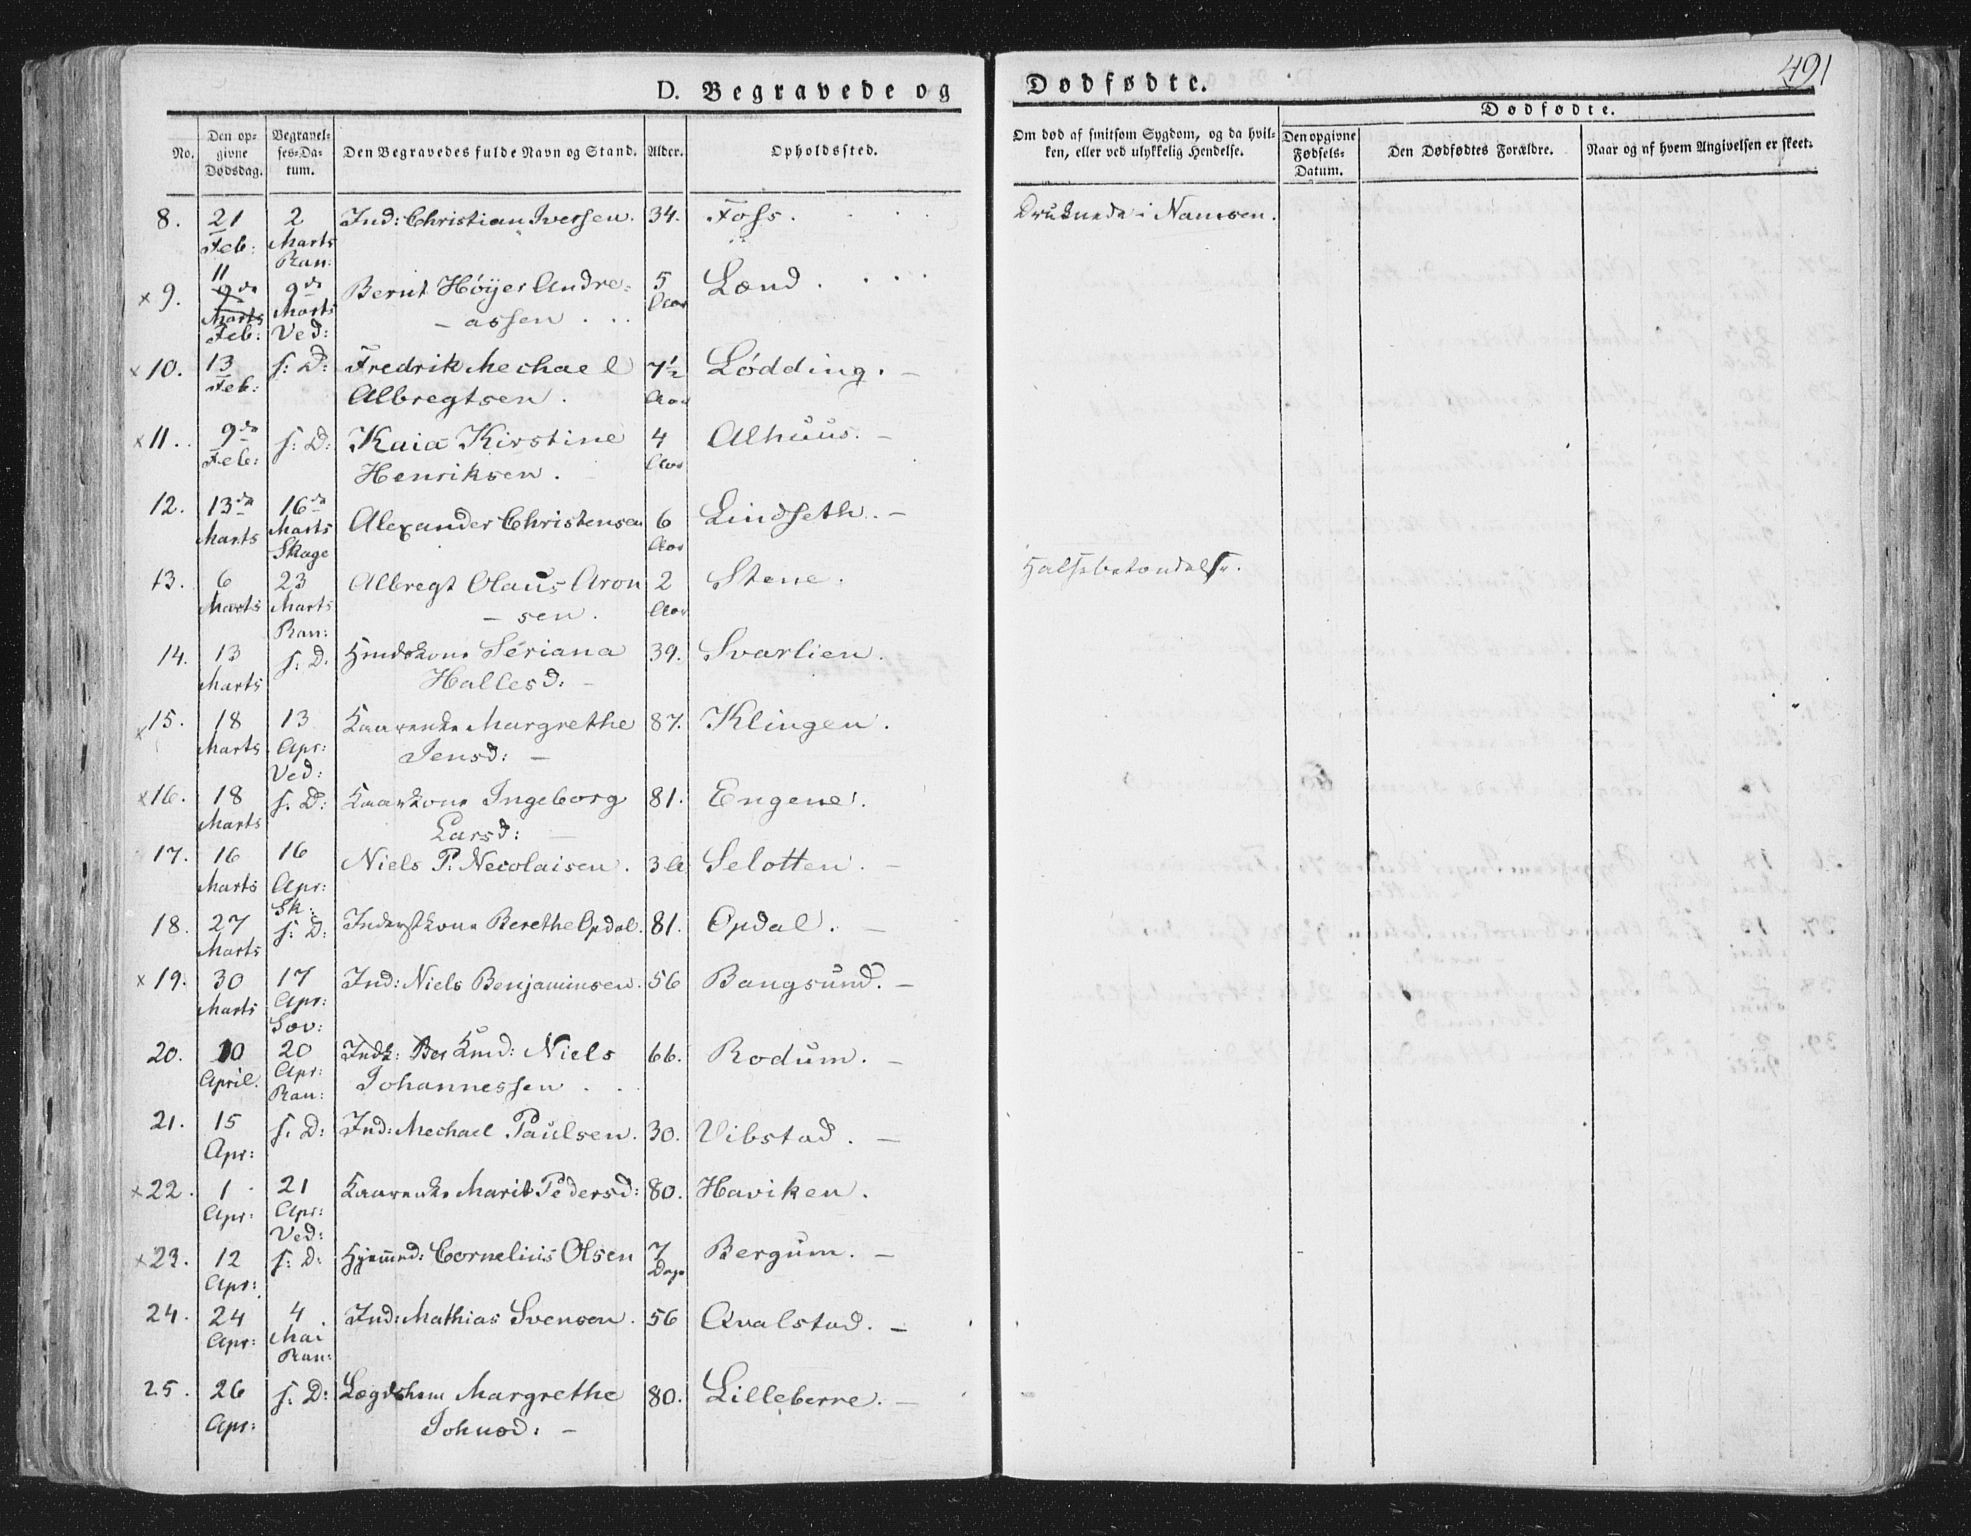 491
D. Begravede og Dødfødte.
Dødfødte.
No. Den opgivne Dødsdag. Begravelses-Datum. Den Begravedes fulde Navn og Stand. Alder. Opholdssted. Om død af smitsom Sygdom, og da hvilken, eller ved ulykkelig Hendelse. Den opgivne Fødsels-Datum. Den Dødfødtes Forældre. Naar og af hvem Angivelsen er skeet.
8. 21 Feb: 2 Marts Ran: Ind: Christian Iversen. 34. Foss. Druknede i Namsen.
x 9. 11 Feb: 9de Marts Ved: Bernt Höÿer Andre=
-assen 5 Aar Lænd.
x 10. 13 Feb: s: D: Fredrik Mechael
Albregtsen. 7½ Aar Lødding. -
x 11. 9de Feb: s: D: Kaia Kirstine
Henriksen. 4 Aar Alhuus. -
12. 13de Marts 16de Marts Skage Alexander Christensen 6 Aar Lindseth. -
13. 6 Marts 23 Marts Ran: Albregt Olaus Aron
-sen. 2 Aar Stene. Halsebetændelse.
14. 13 Marts s: D: Seriana
Hallesd: - 39. Svarlien.
x 15. 18 Marts 13 Apr: Ved: Margrethe
Jensd: - 87. Klingen.
x 16. 18 Marts s: D: Kaarkone Ingeborg
Larsd: - 81. Engene.
17. 16 Marts 16 Apr: Sk: Niels P. Necolaisen. 3 A Selotten. -
18. 27 Marts s: D: Inderstkone Berethe Opdal. 81. Opdal. -
x 19. 30 Marts 17 Apr: Sov: Ind: Niels Benjaminsen. 56 Bangsund. -
20. 10 April. 20 Apr: Ran: Niels
Johannessen 66. Rodum. -
21. 15 Apr: s: D: Ind: Mechael Paulsen. 30. Vibstad. -
x 22. 1 Apr: 21 Apr: Ved: Marit Pedersd: 80. Haviken.
x 23. 12 Apr: s: D: Cornelius Olsen 7 Dage Bergum. -
24. 24 Apr: 4 Mai Ran: Ind: Mathias Svensen. 56 Qvalstad. -
25. 26 Apr: s: D: Lægdslem Margrethe
Johnsd: - 80. Lilleberre. -